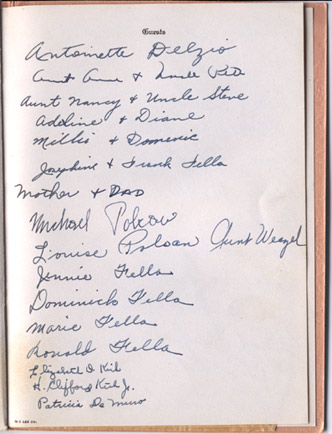 Guests
Antoinette Delzio
Aunt Anna & Uncle Pete
Aunt Nancy & Uncle Steve
Adeline & Diane
Millie & Domenic
Josephine & Frank Fella
Mother & DAD
Michael
Louise Aunt Weazel
Jennie Fella
Dominick Fella
Marie Fella
Ronald Fella
Elizabeth D. Kirk
H. Clifford Kirk Jr.
Patricia De Muro